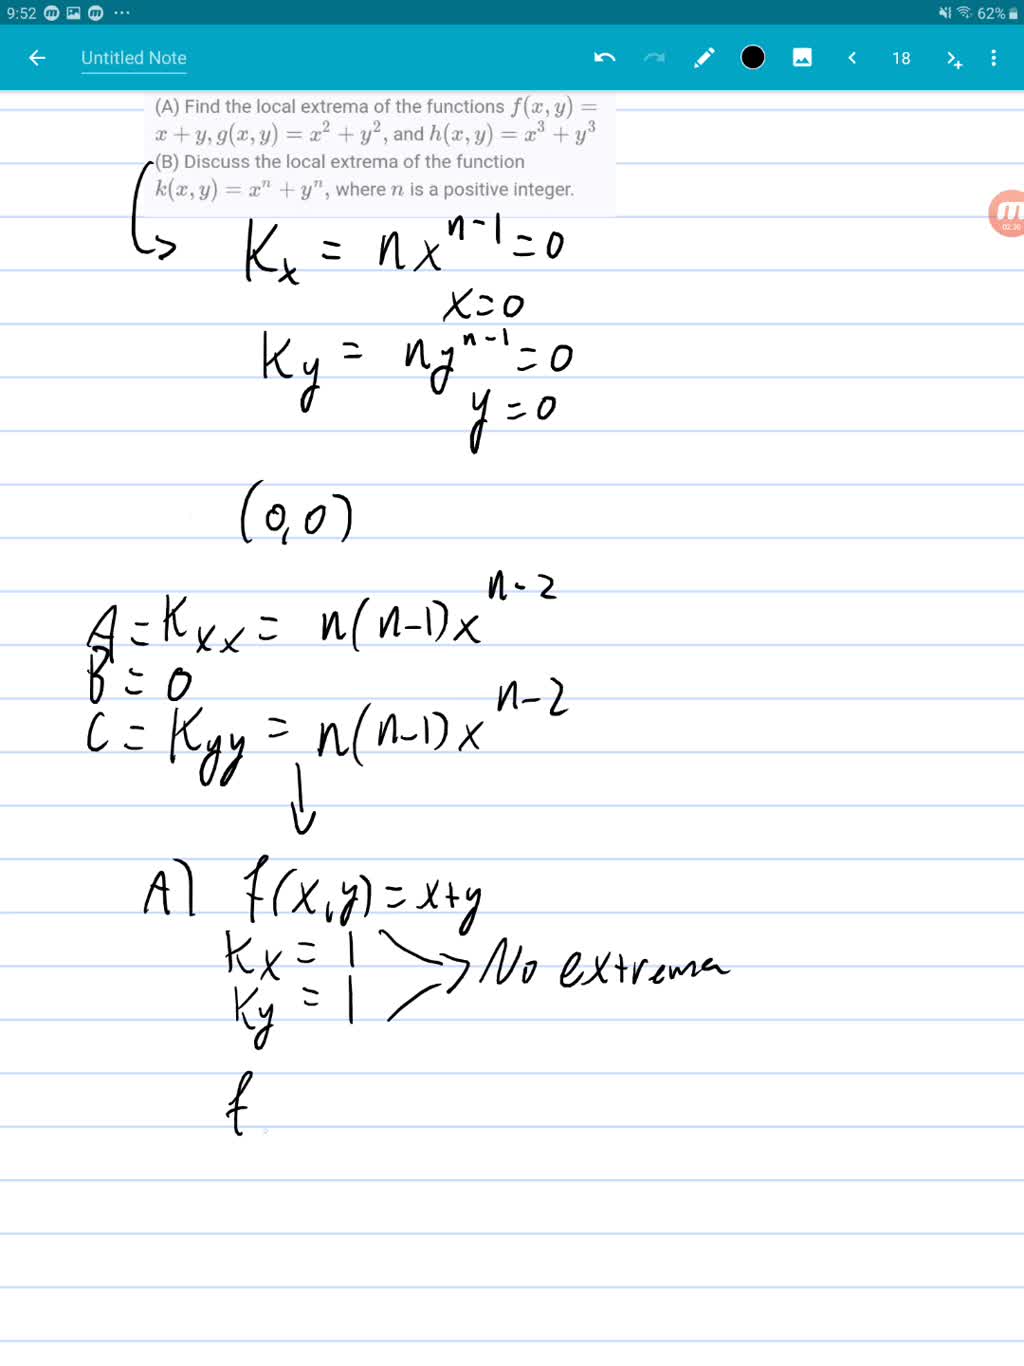 9:52 62%
Untitled Note 18
(A) Find the local extrema of the functions f(x, y) =
x + y, g(x, y) = x² + y², and h(x, y) = x³ + y³
(B) Discuss the local extrema of the function
k(x, y) = xⁿ + yⁿ, where n is a positive integer.
02:30
Kₓ = nxⁿ⁻¹ = 0
x = 0
Ky = nyⁿ⁻¹ = 0
y = 0
(0, 0)
A = Kₓₓ = n(n-1)xⁿ⁻²
B = 0
C = Kyy = n(n-1)xⁿ⁻²
A) f(x, y) = x+y
Kₓ = 1
No extrema
Ky = 1
f